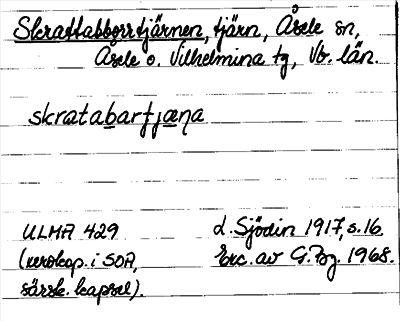 Skrattabborrtjärnen, tjärn, Åsele sn,
Åsele o. Vilhelmina tg, Vb. län.
skratabartjæṇa
ULMA 429
(xerokop. i SOA,
särsk. kapsel).
d. Sjödin 1917, s. 16.
Exc. av G. Pzg. 1968.